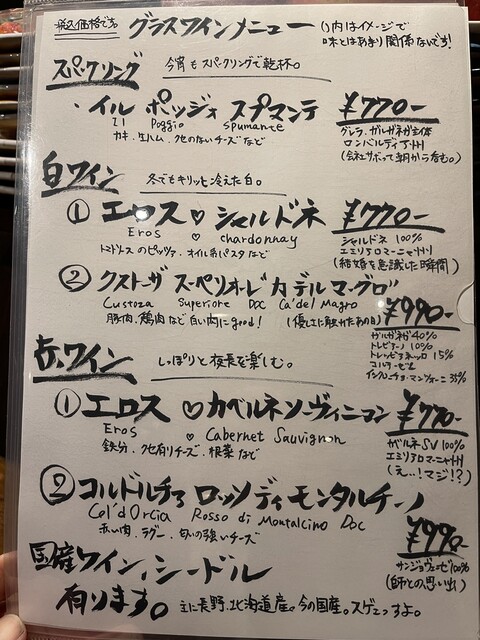 税込価格です。 グラスワインメニュー ( )内はイメージで
味とはあまり関係ないです!
スパークリング 今宵もスパークリングで乾杯。
・イル ポッジォ スプマンテ ¥770-
Il Poggio Spumante
カキ、生ハム、クセのないチーズなど
グレラ、ガルガネガ主体
ロンバルディア州
(会社サボって朝から呑む。)
白ワイン 冬でもキリッと冷えた白。
① エロス♡シャルドネ ¥770-
Eros ♡ chardonnay
トマトソースのピッツァ、オイル系パスタなど
シャルドネ 100%
エミリアロマーニャ州
(結婚を意識した瞬間)
② クストーザ スーペリオーレ カデルマーグロ ¥990-
Custoza Superiore DOC Ca'del Magro
豚肉、鶏肉など白い肉にgood! (優しさに触れたあの日)
ガルガネガ 40%
トレビアーノ 10%
トレッビアネッロ 15%
コルテーゼ
インクローチョ・マンゾーニ 35%
赤ワイン しっぽりと夜長を楽しむ。
① エロス ♡カベルネソーヴィニヨン ¥770-
Eros ♡ Cabernet Sauvignon
鉄分、クセ有りチーズ、根菜など
カベルネSV 100%
エミリアロマーニャ州
(え…!マジ!?)
② コルドルチア ロッソディモンタルチーノ
Col'd Orcia Rosso di Montalcino Doc
赤い肉、ラグー、匂いの強いチーズ
¥990-
サンジョヴェーゼ100%
(師との思い出)
国産ワイン、シードル
有ります。 主に長野、北海道産。今の国産。スゲェっすよ。